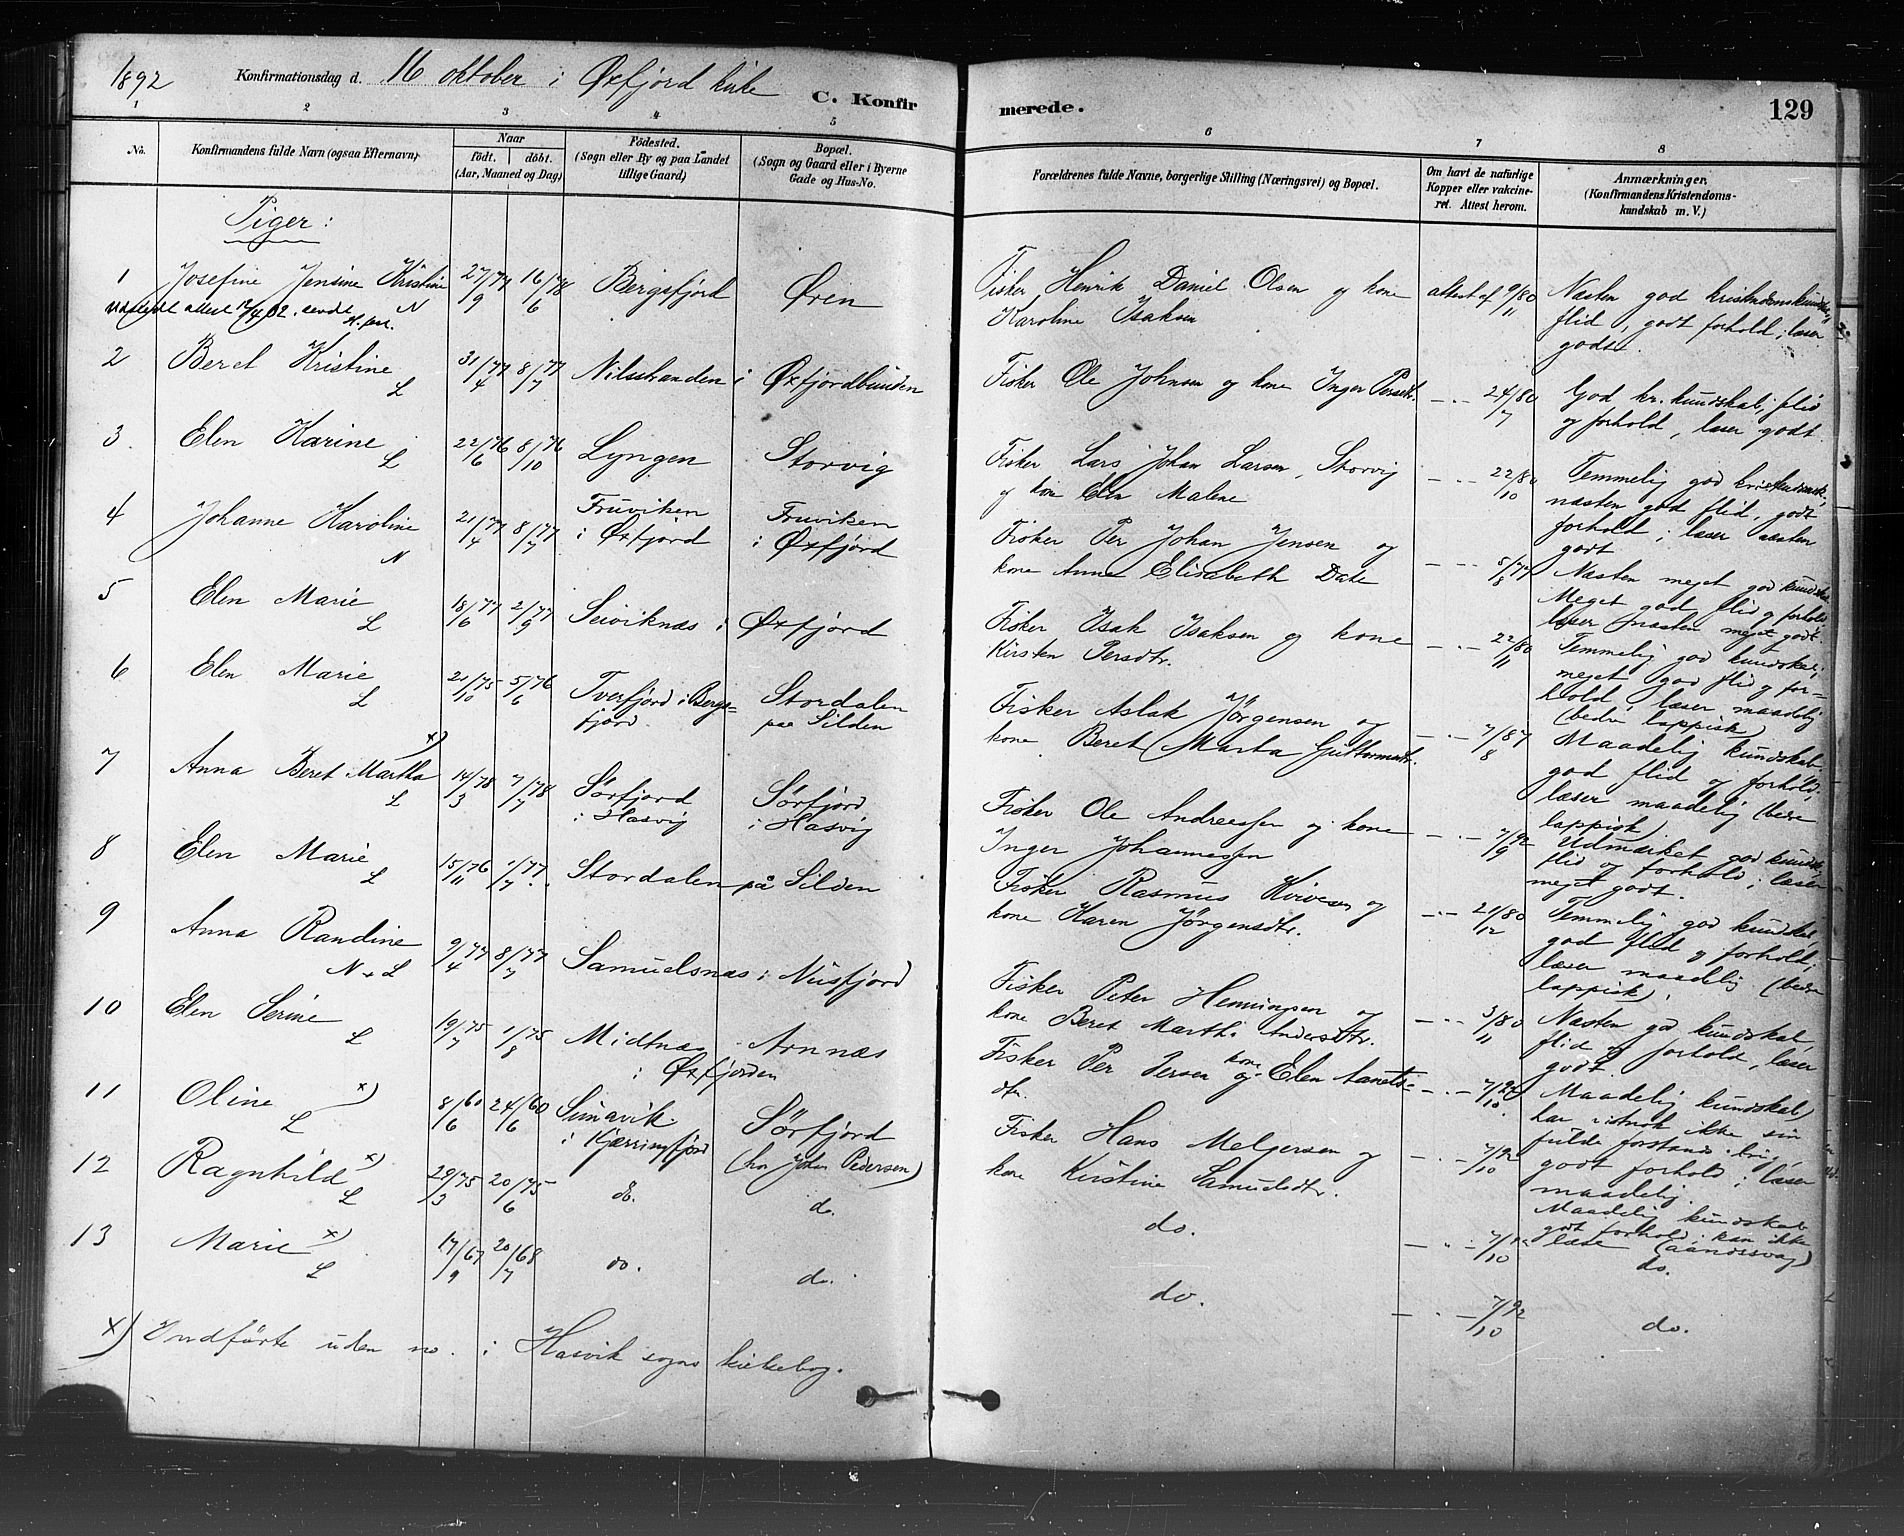 1892 Konfirmationsdag d. 16 oktober i Øxfjord kirke C. Konfirmerede. 129
1 2 3 4 5 6 7 8
No.
Konfirmandens fulde Navn (ogsaa Efternavn)
Naar
födt. döbt.
(Aar, Maaned og Dag)
Födested.
(Sogn eller By og paa Landet
tillige Gaard)
Bopæl.
(Sogn og Gaard eller i Byerne
Gade og Hus-No.
Forældrenes fulde Navne, borgerlige Stilling (Næringsvei) og Bopæl.
Om havt de naturlige
Kopper eller vakcine-
ret. Attest herom.
Anmærkninger.
(Konfirmandens Kristendoms-
kundskab m. V.)
Piger:
1 Josefine Jensine Kristine N 27/9 77 16/6 78 Bergsfjord Øren
attest 17/4 02. sendt
Fisker Henrik Daniel Olsen og kone
Karoline Isaksen
attest af 9/11 80
Næsten god kristendomskundsk.
flid, godt forhold, læser
godt.
2 Beret Kristine L 31/4 77 8/7 77 Nilsstranden i Øxfjordbunden
Fisker Ole Johnsen og kone Inger Persdtr.
-"- 24/7 80
God kr. kundskab, flid
og forhold, læser godt.
3. Elen Karine L 22/6 76 8/10 76 Lyngen Storvig
Fisker Lars Johan Larsen, Storvig
og kone Elen Malene
-"- 22/10 80
Temmelig god kristendomsk.
næsten god flid, godt
forhold; læser næsten
godt
4 Johanne Karoline N 21/4 77 8/7 77
Fruviken
i Øxfjord
Fruviken
i Øxfjord
Fisker Per Johan Jensen og
kone Anne Elisabeth Date
-"- 5/8 77
Næsten meget god kundskab
Meget god flid og forhold
læser næsten meget godt
5 Elen Marie L 18/6 77 2/9 77 Seiviknæs i Øxfjord
Fisker Isak Isaksen og kone
Kirsten Persdtr.
-"- 22/11 80
Temmelig god kundskab,
meget god flid og for-
hold, læser maadelig
(bedre lappisk)
6 Elen Marie L 21/10 75 5/6 76
Tverfjord i Bergs-
fjord.
Stordalen
paa Silden
Fisker Aslak Jørgensen og
kone Beret Marta Guttormsdtr.
-"- 7/8 87
Maadelig kundskab
god flid og forhold,
læser maadelig (bedre
lappisk)
7 Anna Beret Martha x) L 14/3 78 7/7 78
Sørfjord
i Hasvig
Sørfjord
i Hasvig
Fisker Ole Andreassen og kone
Inger Johannessen
-"- 7/9 92
Udmærket god kundsk.
flid og forhold; læser
meget godt.
8 Elen Marie L 15/11 76 1/7 77. Stordalen på Silden
Fisker Rasmus Kvivesen og
kone Karen Jørgensdtr.
-"- 21/12 80
Temmelig god kundskab,
god flid og forhold;
læser maadelig (bedre
lappisk).
9 Anna Randine N + L 9/4 77 8/7 77 Samuelsnæs i Nusfjord
Fisker Peter Henningsen og
kone Beret Martha Andersdtr.
-"- 3/11 80
Næsten god kundskab,
flid og forhold, læser
godt.
10 Elen Serine L 19/7 75 1/8 75 Midtnæs Arnnæs
i Øxfjorden
Fisker Per Persen og kone Elen Aanets-
dtr.
-"- 7/10 92
Maadelig kundskab,
har vistnok ikke sin
fulde forstands brug,
godt forhold; læser
maadelig.
11 Oline x) L 8/6 60 24/6 60
Simavik
i Kjærringfjord
Sørfjord
(hos John Pedersen)
Fisker Hans Melgersen og
kone Kirstine Samuelsdtr.
-"- 7/10 92
Maadelig kundskab
godt forhold; kan ikke
læse (aandssvag)
12 Ragnhild x) L 29/3 75 20/6 75 do. do. do. -"- 7/10 92 do.
13 Marie x) L 17/9 67 20/7 68 do. do. do. -"- 7/10 92 do.
x) Indførte uden no. i Hasvik sogns kirkebog.